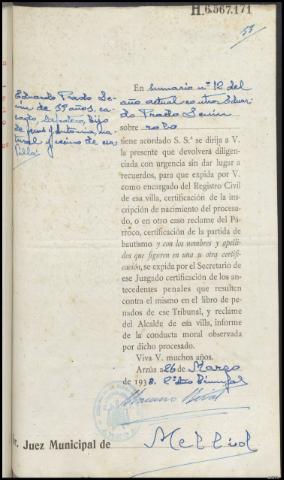 H.6.567.171
53
En sumario nº 12 del
año actual contra Eduar-
do Prado Senin
sobre robo
Eduardo Prado Se-
nin de 35 años, ca-
sado, hijo
de Jesus y Antonia, na-
tural y vecino de esa
villa
tiene acordado S. Sª se dirija a V.
la presente que devolverá diligen-
ciada con urgencia sin dar lugar a
recuerdos, para que expida por V.
como encargado del Registro Civil
de esa villa, certificación de la ins-
cripción de nacimiento del procesa-
do, o en otro caso reclame del Pá-
rroco, certificación de la partida de
bautismo y con los nombres y apelli-
dos que figuren en una u otra certifi-
cación, se expida por el Secretario de
ese Juzgado certificación de los an-
tecedentes penales que resulten
contra el mismo en el libro de pe-
nados de ese Tribunal, y reclame
del Alcalde de esa villa, informe
de la conducta moral observada
por dicho procesado.
Viva V. muchos años.
Arzúa 26 de Março
de 1938.
r. Juez Municipal de Mellid